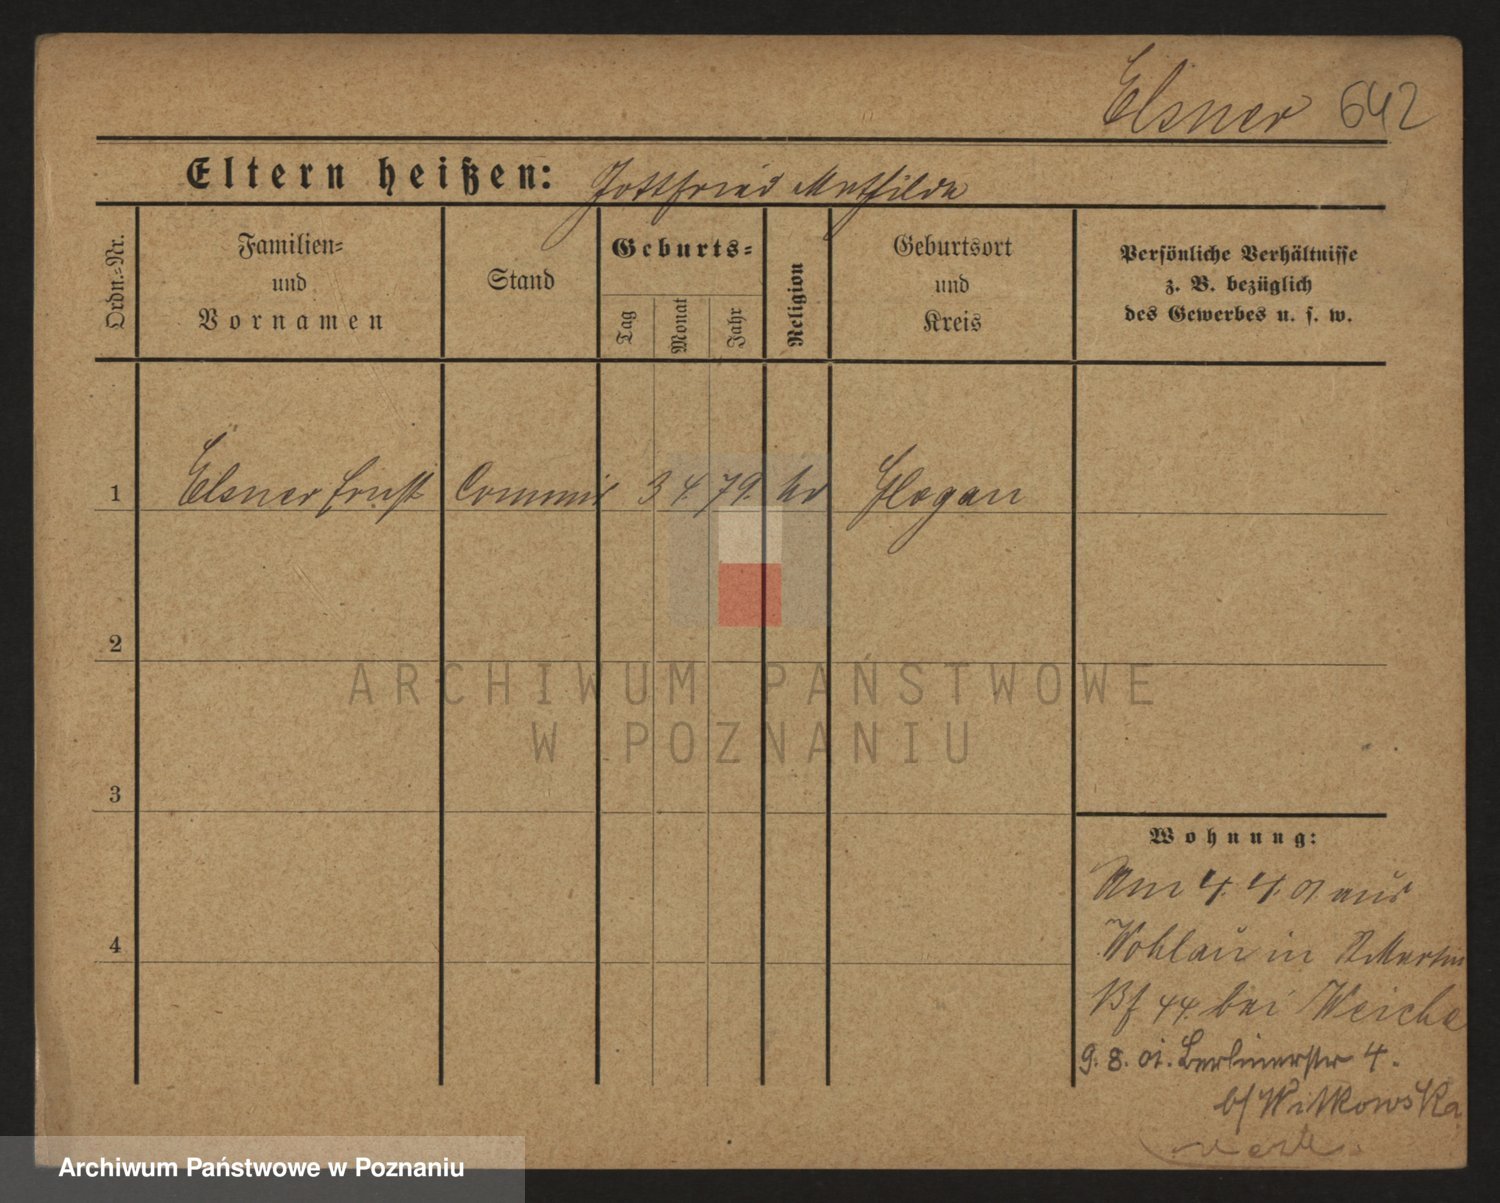 Elsner 642
Eltern heißen: Gottfried Mathilde
Ordn.-Nr.
Familien-
und
Vornamen
Stand
Geburts-
Tag
Monat
Jahr
Religion
Geburtsort
und
Kreis
Persönliche Verhältnisse
z. B. bezüglich
des Gewerbes u. s. w.
1 Elsner Ernst Commis 3 4. 79. Glogau
2
ARCHIWUM PAŃSTWOWE
W POZNANIU
3
Wohnung:
Am 4. 4. 01 aus
4
Wohlau in Martin
44. bei Weiche
9. 8. 01. Berlinerstr 4.
b/ Witkowska
Archiwum Państwowe w Poznaniu